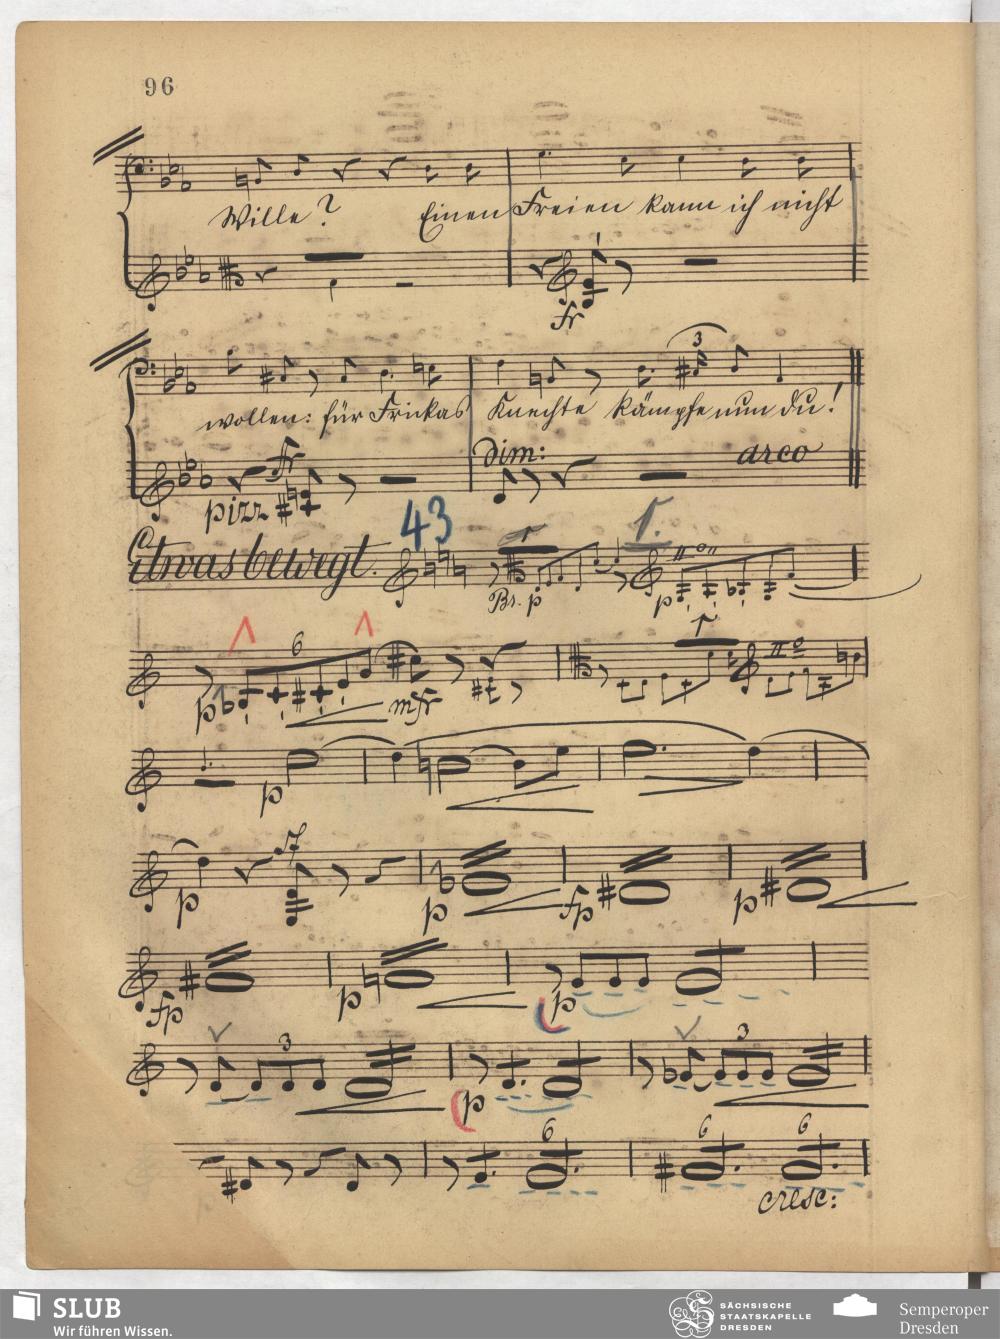 96
Wille? Einen Freien kann ich nicht
fr
wollen: für Frickas Knechte kämpfe nun du!
3
pizz fr dim: arco
Etwas bewegt. 43
Br. p 1. p
6
p mfr
p
p p fp p
fp p p
3 3
p
6 6 6
cresc:
SLUB
Wir führen Wissen.
SÄCHSISCHE
STAATSKAPELLE
DRESDEN
Semperoper
Dresden